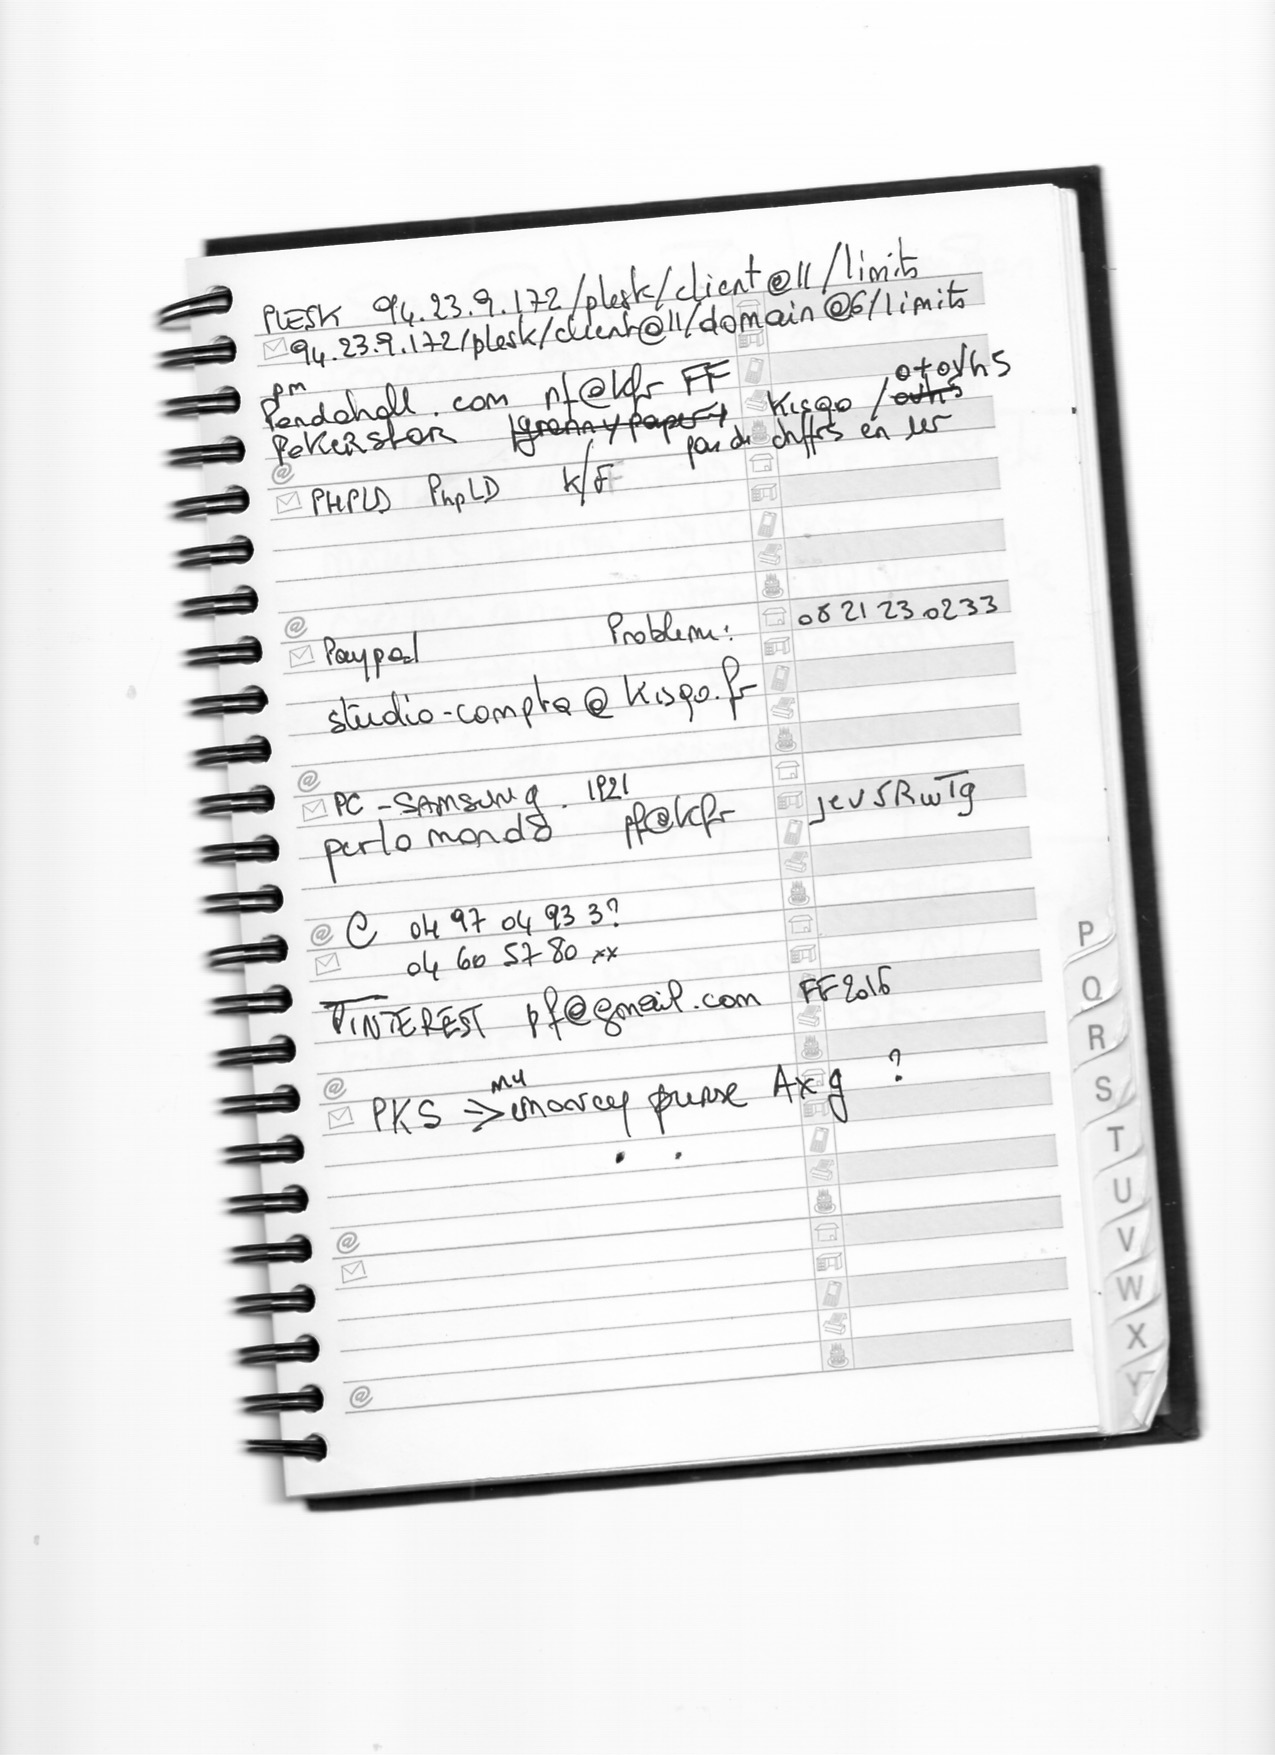 PLESK 94.23.9.172/plesk/client@11/limits
94.23.9.172/plesk/client@11/domain@6/limits
pm
Pandahall.com pf@kfr FF
otovhs
PoKERSTAR Kisqo /
pas de chffrs en 1er
PHPLD PhpLD K/F
Paypal Problem: 08 21 23 0233
studio-compta@kisqo.fr
PC-SAMSUNg. 1921
perlo mondo pf@kfr jeu5RwTg
@ 04 97 04 93 3?
04 60 57 80 xx
PINTEREST pf@gmail.com FF2016
My
PKS => purse Axg ?
P
Q
R
S
T
U
V
W
X
Y